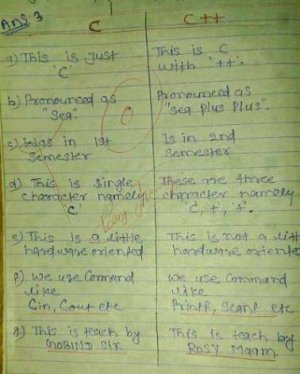 Ans 3
C C++
a) This is Just 'C'
This is C with '++'.
b) Pronounced as "Sea".
Pronounced as "Sea Plus Plus".
0
c) in 1st Semester
Is in 2nd Semester
d) This is single character namely 'C'
These are three character namely C, +, +.
e) This is a little hardware oriented
This is not a little hardware oriente
f) We use Command like Cin, Cout etc
We use Command like Printf, Scanf etc
g) This is teach by GOBIND Sir.
This is teach by ROSY Mam